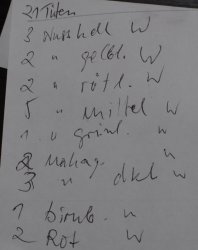 21 Tüten
3 Nussb. hell W
2 " gelbl. W
2 " rötl. W
5 " Mittel W
1 " grünl. W
2 Mahag. W
3 " dkl W
1 Birnb. W
2 Rot W